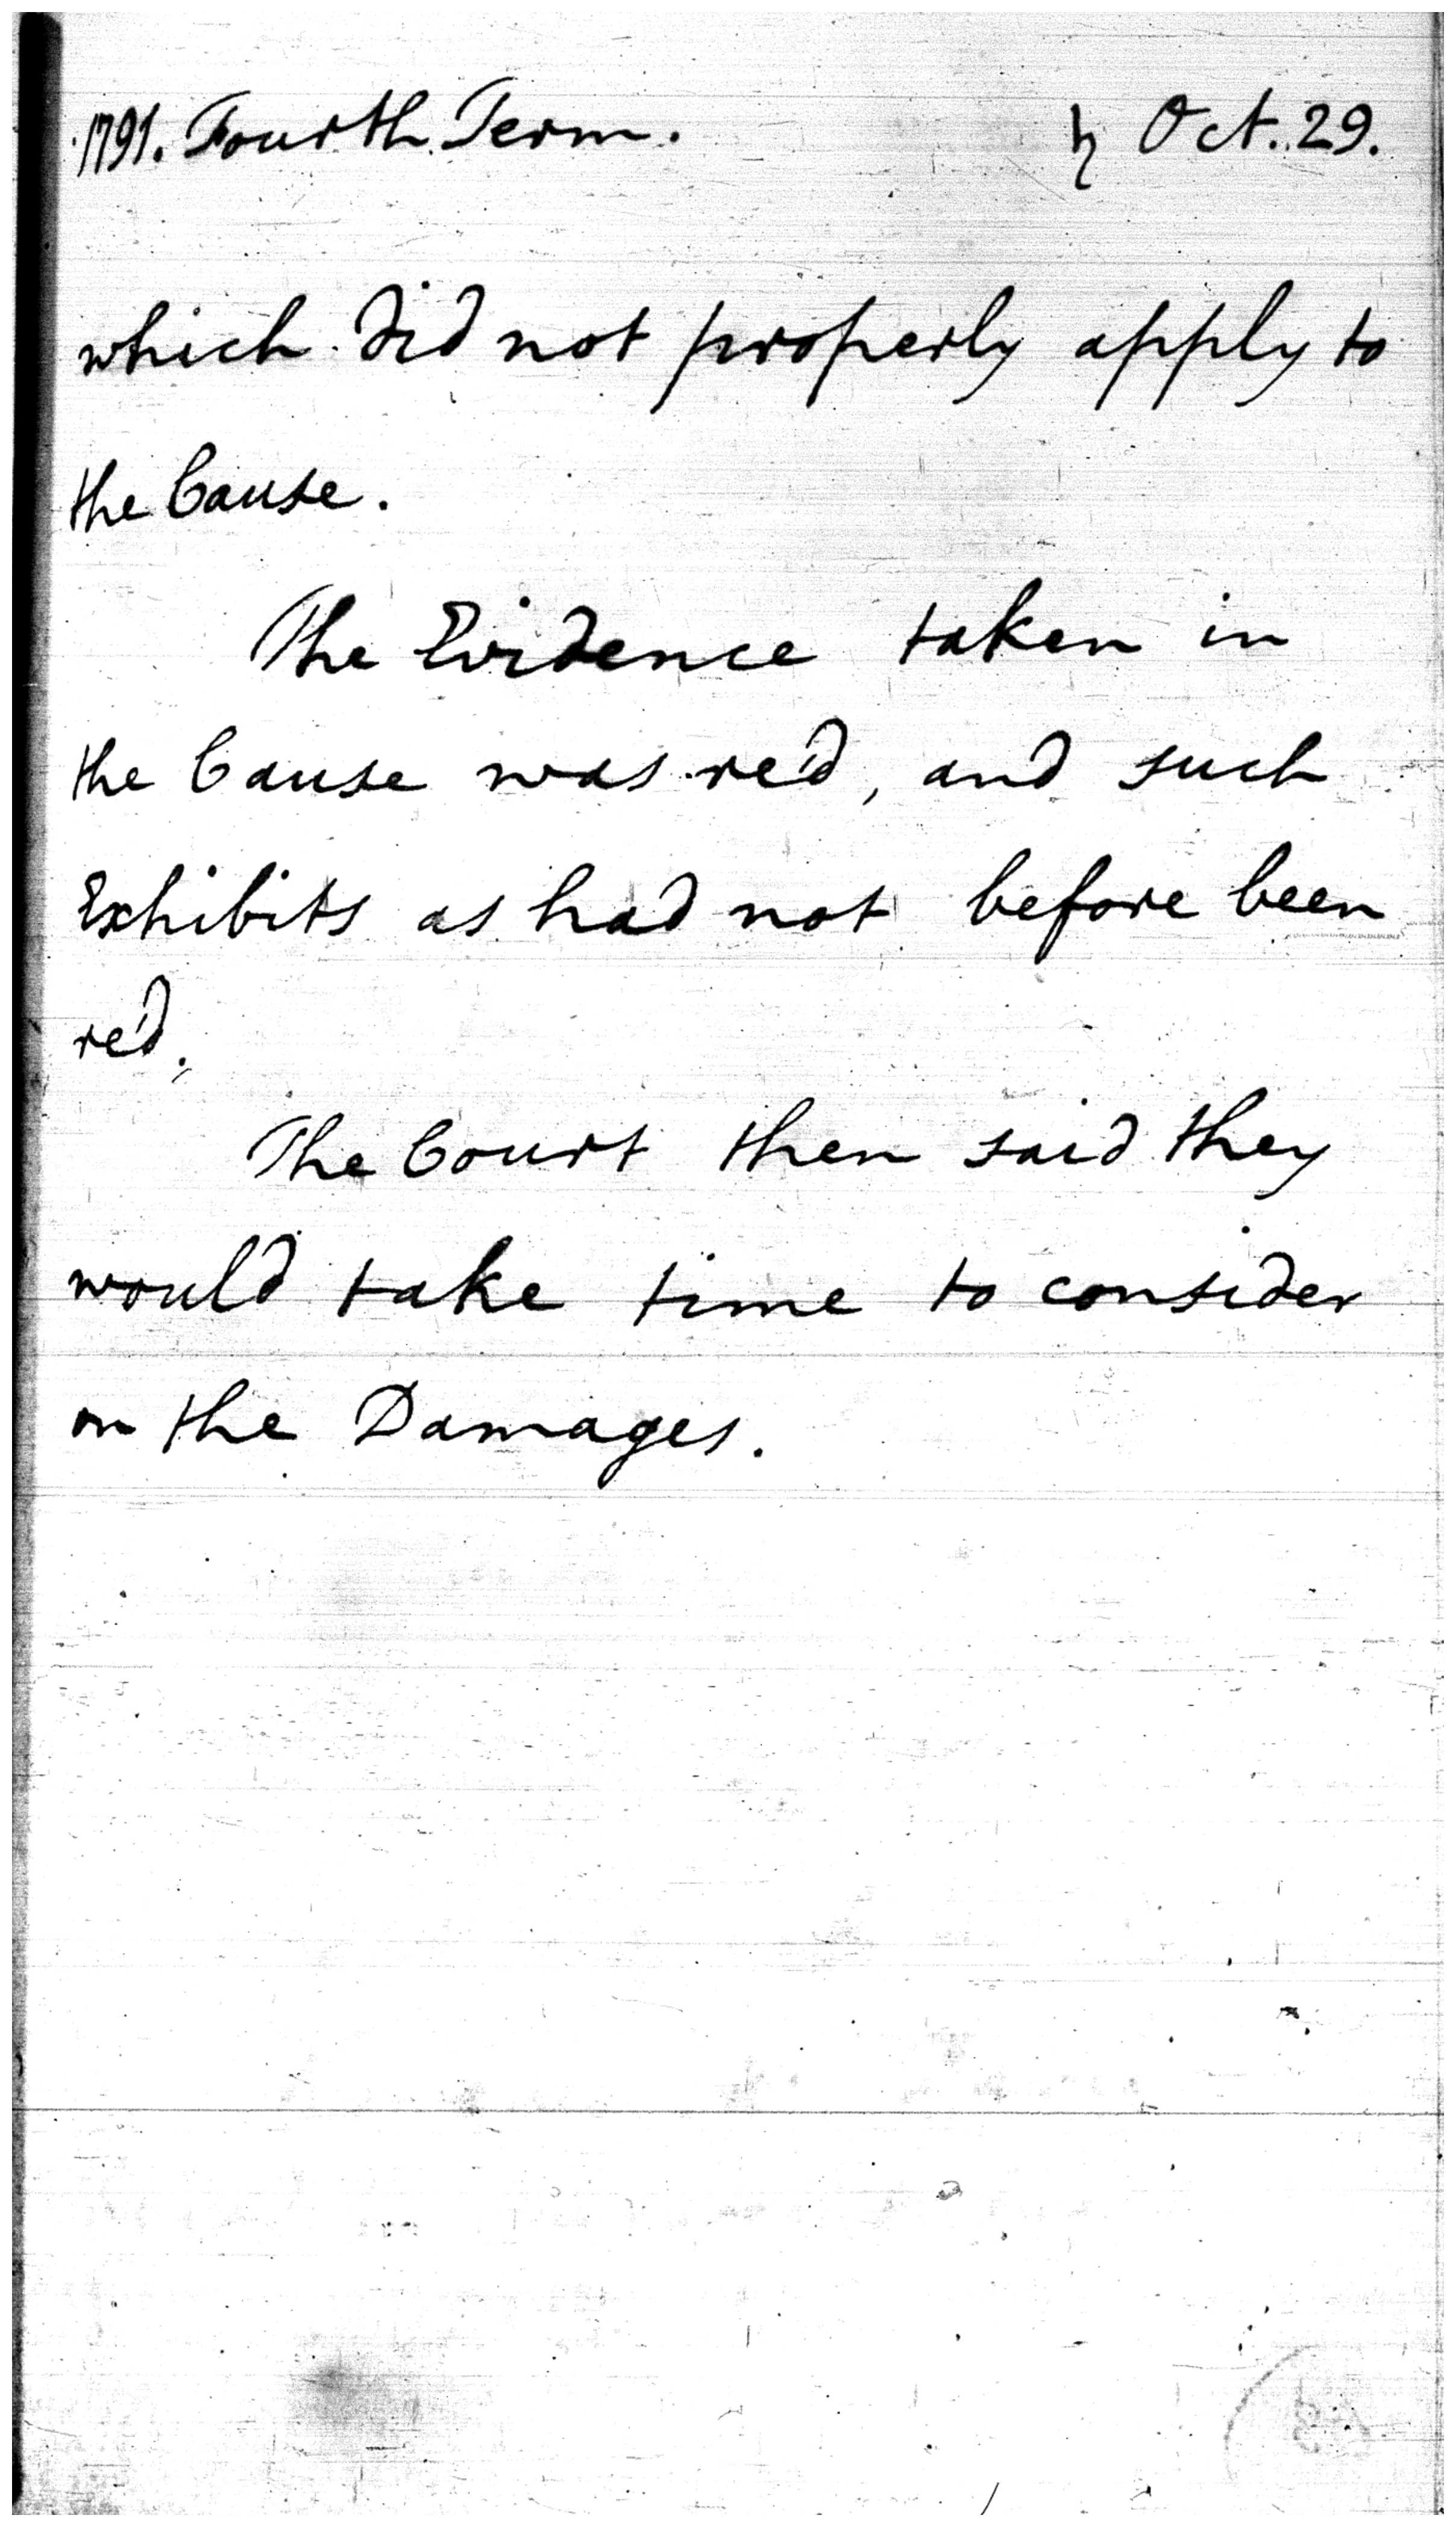 1791. Fourth Term. ♄ Oct. 29.
which did not properly apply to
the Cause.
The Evidence taken in
the Cause was re'd, and such
Exhibits as had not before been
re'd.
The Court then said they
would take time to consider
on the Damages.